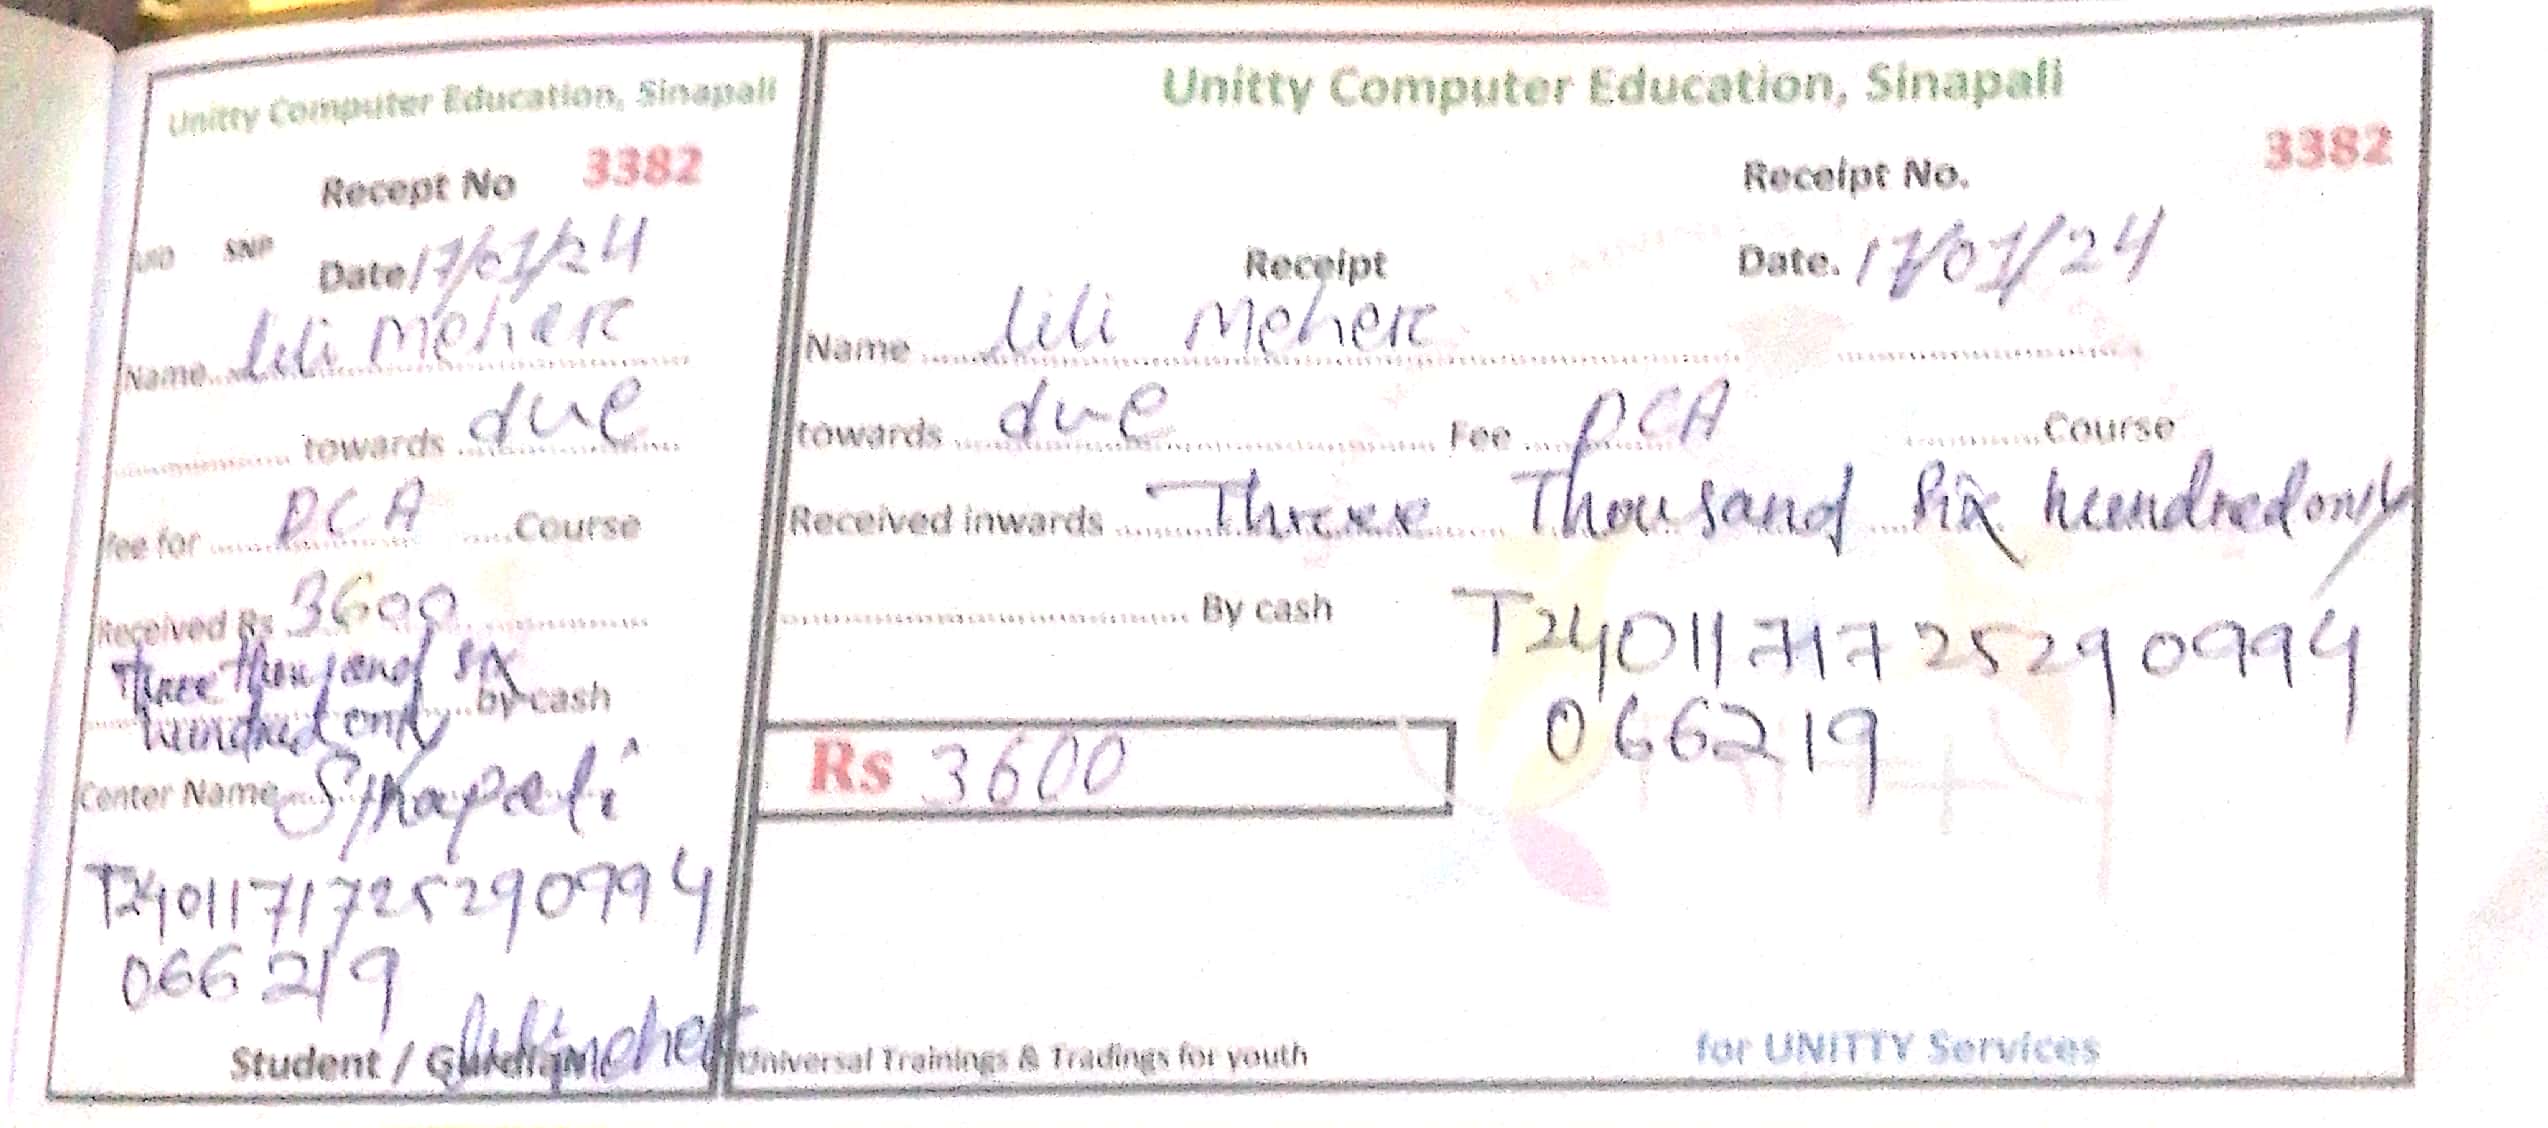 Unitty Computer Education, Sinapali
Recept No 3382
SNP
Date 17/01/24
Name lili Meher
towards due
fee for DCA Course
Received Rs 3600
Three thousand six
hundred only by cash
Center Name Sinapali
T2401171725290994
066219
Student / Guardian lili meher
Unitty Computer Education, Sinapali
3382
Receipt No.
Receipt
Date. 17/01/24
Name lili Meher
towards due Fee DCA Course
Received inwards Three Thousand Six hundred only
By cash T2401171725290994
066219
Rs 3600
Universal Trainings & Tradings for youth
for UNITTY Services